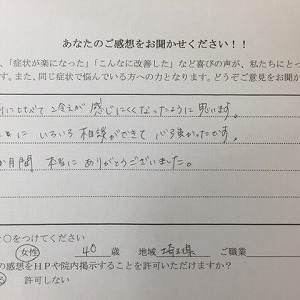 あなたのご感想をお聞かせください！！
、「症状が楽になった」「こんなに改善した」など喜びの声が、私たちにとっ
す。また、同じ症状で悩んでいる方への力となります。どうぞご意見をお聞か
に比べて冷えが感じにくくなったように思います。
にいろいろ相談ができて心強かったです。
か月間 本当にありがとうございました。
○をつけてください
女性 40 歳 地域 埼玉県 ご職業
の感想をHPや院内掲示することを許可いただけますか？
許可しない